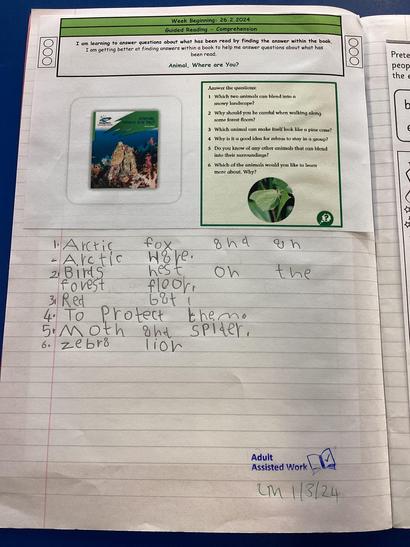 Week Beginning: 26.2.2024
Guided Reading - Comprehension
I am learning to answer questions about what has been read by finding the answer within the book.
I am getting better at finding answers within a book to help me answer questions about what has
been read.
Animal, Where are You?
Answer the questions:
1 Which two animals can blend into a
snowy landscape?
2 Why should you be careful when walking along
some forest floors?
3 Which animal can make itself look like a pine cone?
4 Why is it a good idea for zebras to stay in a group?
5 Do you know of any other animals that can blend
into their surroundings?
6 Which of the animals would you like to learn
more about. Why?
1. Arctic fox and an
Arctic Hare.
2. Birds nest on the
forest floor.
3. Red bat
4. To Protect them.
5. Moth and spider.
6. zebra lion
Adult
Assisted Work
1/3/24